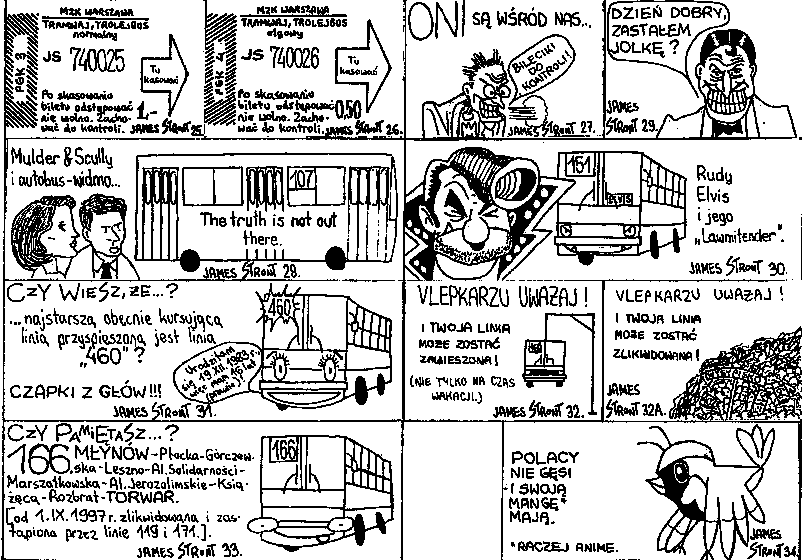 PGK 3
MZK WARSZAWA
TRAMWAJ, TROLEJBUS
normalny
JS 740025
Tu
kasować
Po skasowaniu
biletu odstępować
nie wolno. Zacho-
wać do kontroli.
1,-
JAMES STRONT 25.
PGK 4
MZK WARSZAWA
TRAMWAJ, TROLEJBUS
ulgowy
JS 740026
Tu
kasować
Po skasowaniu
biletu odstępować
nie wolno. Zacho-
wać do kontroli.
0,50
JAMES STRONT 26.
ONI SĄ WŚRÓD NAS...
BILECIKI
DO
KONTROLI!
JAMES STRONT 27.
DZIEŃ DOBRY,
ZASTAŁEM
JOLKĘ?
JAMES
STRONT 29.
Mulder & Scully
i autobus-widmo...
107
The truth is not out
there.
JAMES STRONT 28.
151
ELVIS
Rudy
Elvis
i jego
„Lawmitender".
JAMES STRONT 30.
CZY WIESZ, ŻE...?
...najstarszą obecnie kursującą
linią przyspieszoną jest linia
„460"?
CZAPKI Z GŁÓW!!!
460
Urodziłam
się 19.XII.1983 r.
więc mam 15 lat
(prawie)!
JAMES STRONT 31.
VLEPKARZU UWAŻAJ!
I TWOJA LINIA
MOŻE ZOSTAĆ
ZAWIESZONA!
(NIE TYLKO NA CZAS
WAKACJI.)
JAMES STRONT 32.
VLEPKARZU UWAŻAJ!
I TWOJA LINIA
MOŻE ZOSTAĆ
ZLIKWIDOWANA!
JAMES
STRONT 32A.
CZY PAMIĘTASZ...?
166 MŁYNÓW-Płocka-Górczew-
ska-Leszno-Al.Solidarności-
Marszałkowska-Al.Jerozolimskie-Ksią-
żęca-Rozbrat-TORWAR.
[od 1.IX.1997 r. zlikwidowana i zas-
tąpiona przez linie 119 i 171.]
166
JAMES STRONT 33.
POLACY
NIE GĘSI
I SWOJĄ
MANGĘ*
MAJĄ.
*RACZEJ ANIME.
JAMES
STRONT 34.